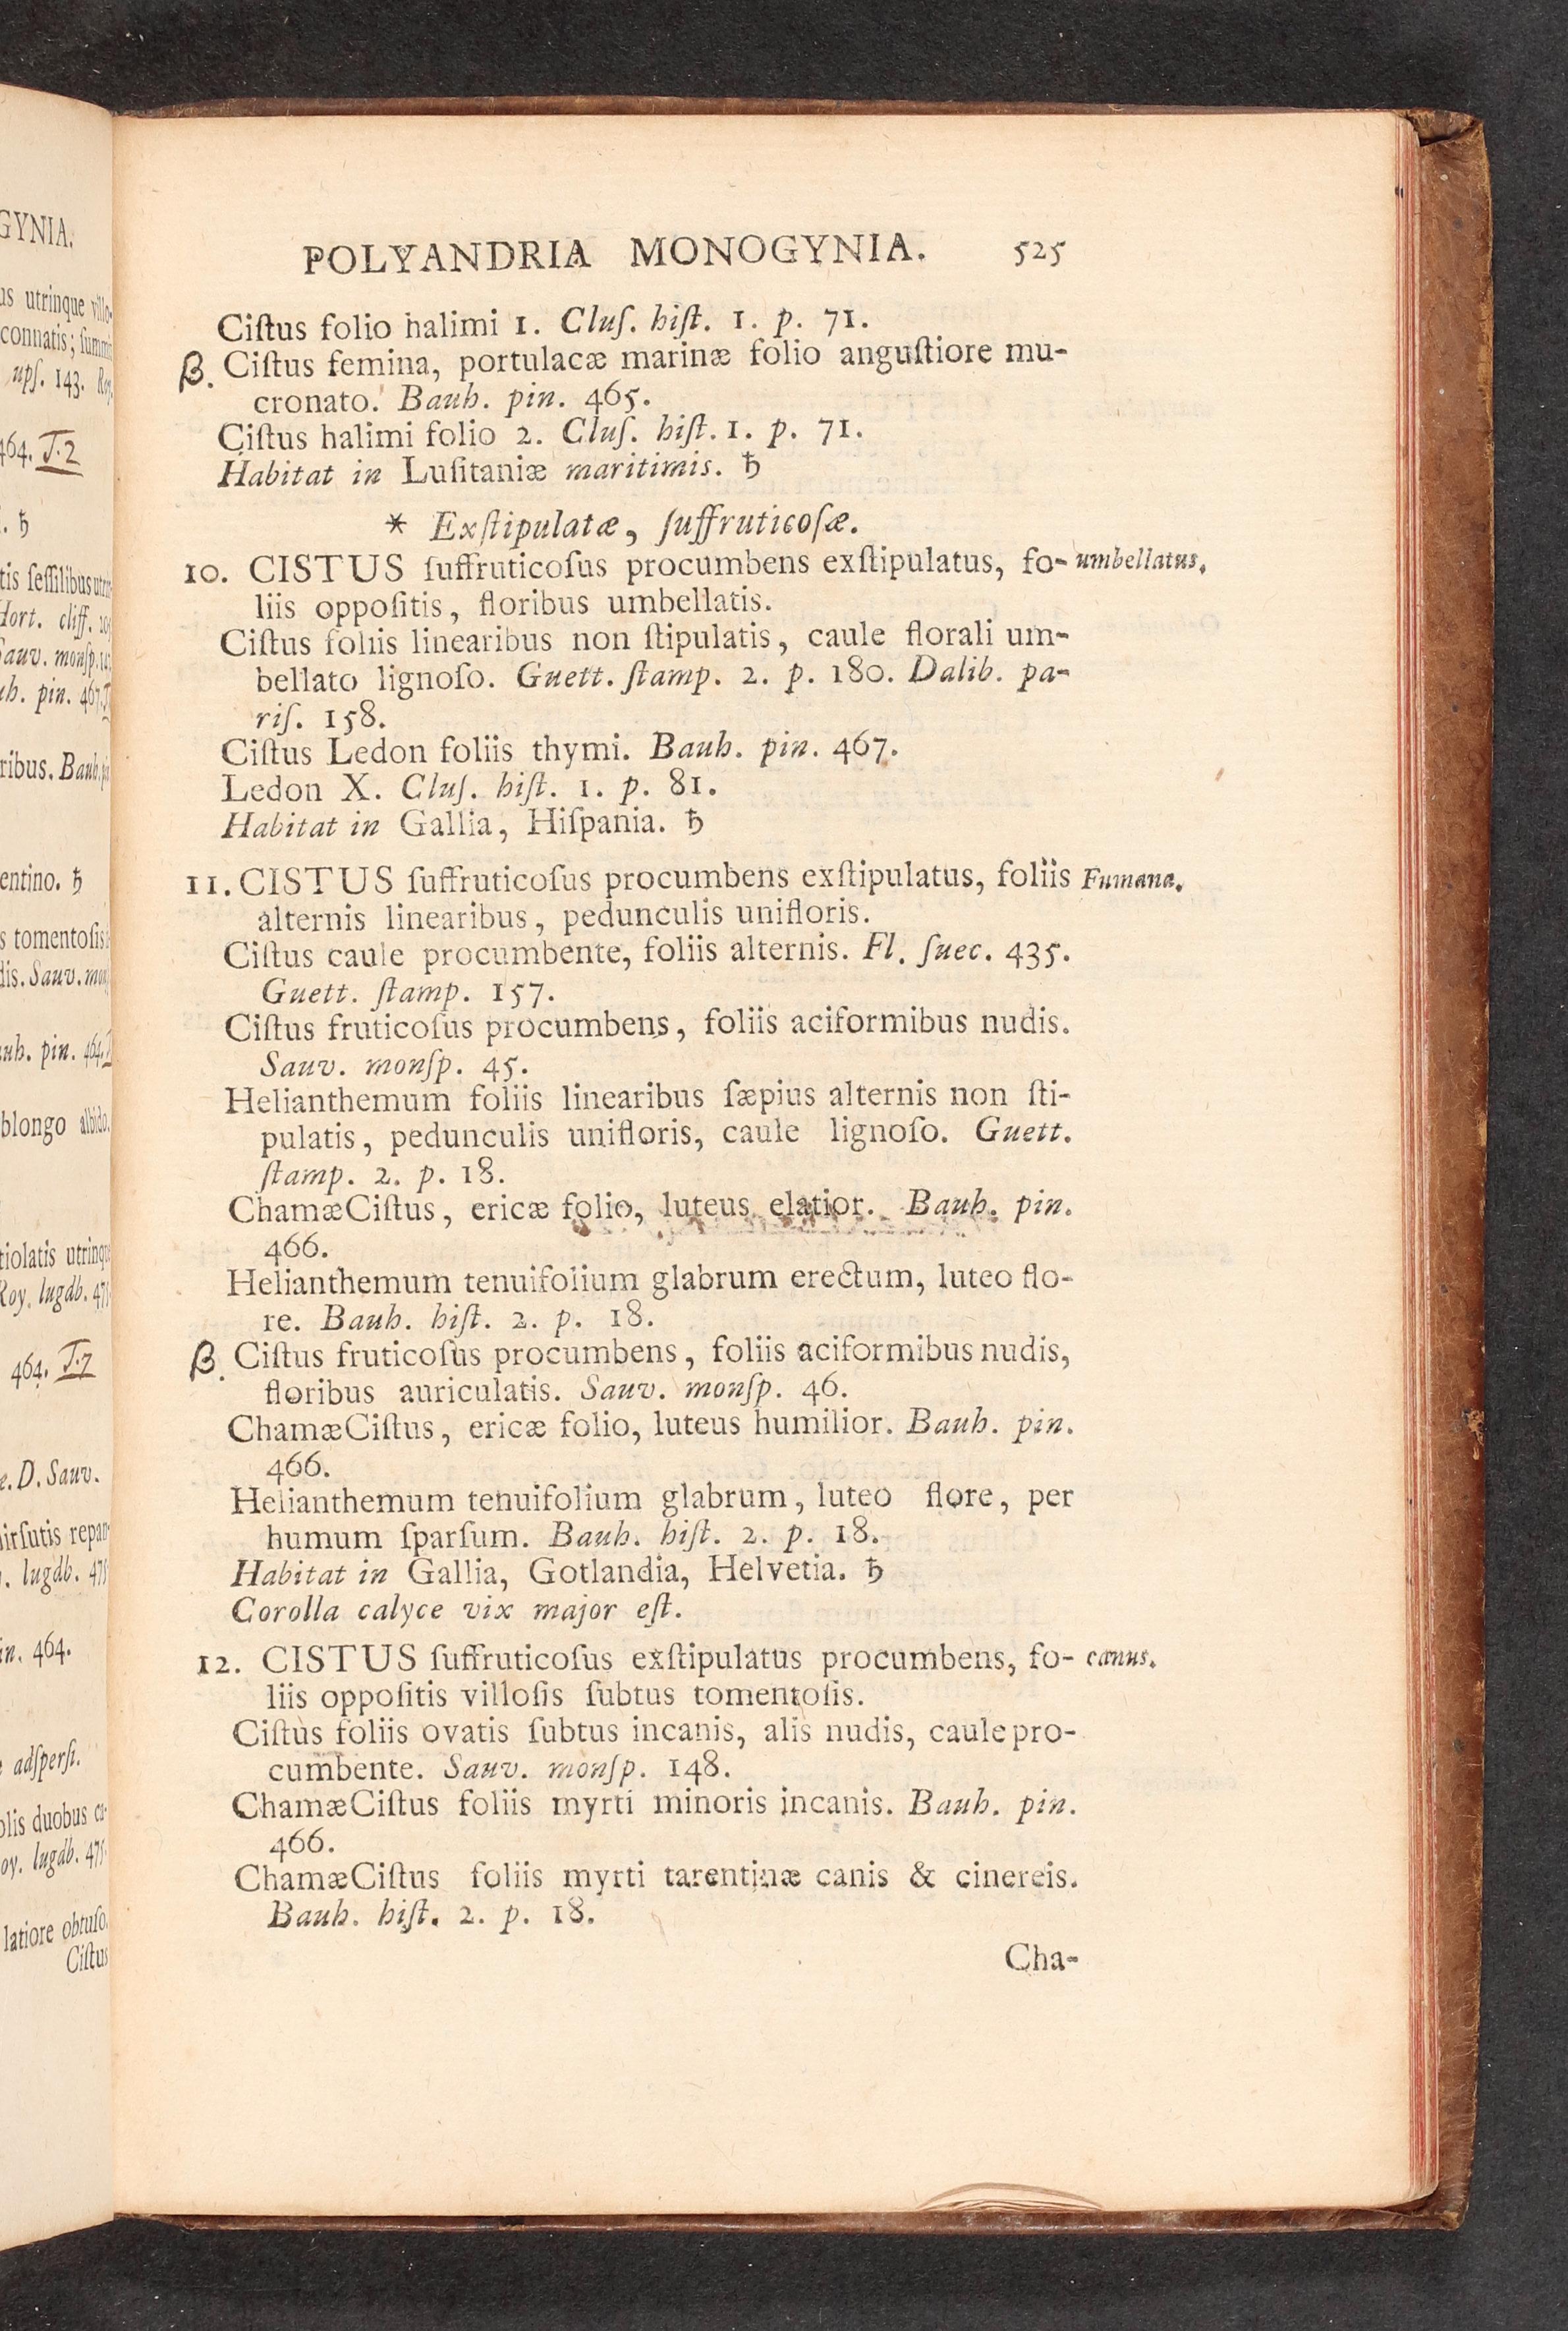 GYNIA.
us utrinque villo-
connatis; summis
ups. 143. Roy.
464. T.2
. ♄
tis sessilibus utrin-
Hort. cliff.
Sauv. monsp.
uh. pin. 467.
ribus. Bauh. pin
entino. ♄
s tomentosis
dis. Sauv. mon
auh. pin. 464.
blongo albido.
tiolatis utrinque
Roy. lugdb. 475
464. T.7
e. D. Sauv.
hirsutis repan-
. lugdb. 475
in. 464.
adspersi.
olis duobus ca-
oy. lugdb. 475.
latiore obtuso.
Cistus
POLYANDRIA MONOGYNIA. 525
Ciſtus folio halimi 1. Cluſ. hiſt. 1. p. 71.
β. Ciſtus femina, portulacæ marinæ folio anguſtiore mu-
cronato. Bauh. pin. 465.
Ciſtus halimi folio 2. Cluſ. hiſt. 1. p. 71.
Habitat in Luſitaniæ maritimis. ♄
* Exſtipulatæ, ſuffruticoſæ.
10. CISTUS ſuffruticoſus procumbens exſtipulatus, fo- umbellatus.
liis oppoſitis, floribus umbellatis.
Ciſtus foliis linearibus non ſtipulatis, caule florali um-
bellato lignoſo. Guett. ſtamp. 2. p. 180. Dalib. pa-
riſ. 158.
Ciſtus Ledon foliis thymi. Bauh. pin. 467.
Ledon X. Cluſ. hiſt. 1. p. 81.
Habitat in Gallia, Hiſpania. ♄
11. CISTUS ſuffruticoſus procumbens exſtipulatus, foliis Fumana.
alternis linearibus, pedunculis unifloris.
Ciſtus caule procumbente, foliis alternis. Fl. ſuec. 435.
Guett. ſtamp. 157.
Ciſtus fruticoſus procumbens, foliis aciformibus nudis.
Sauv. monſp. 45.
Helianthemum foliis linearibus ſæpius alternis non ſti-
pulatis, pedunculis unifloris, caule lignoſo. Guett.
ſtamp. 2. p. 18.
ChamæCiſtus, ericæ folio, luteus elatior. Bauh. pin.
466.
Helianthemum tenuifolium glabrum erectum, luteo flo-
re. Bauh. hiſt. 2. p. 18.
β. Ciſtus fruticoſus procumbens, foliis aciformibus nudis,
floribus auriculatis. Sauv. monſp. 46.
ChamæCiſtus, ericæ folio, luteus humilior. Bauh. pin.
466.
Helianthemum tenuifolium glabrum, luteo flore, per
humum ſparſum. Bauh. hiſt. 2. p. 18.
Habitat in Gallia, Gotlandia, Helvetia. ♄
Corolla calyce vix major eſt.
12. CISTUS ſuffruticoſus exſtipulatus procumbens, fo- canus.
liis oppoſitis villoſis ſubtus tomentoſis.
Ciſtus foliis ovatis ſubtus incanis, alis nudis, caule pro-
cumbente. Sauv. monſp. 148.
ChamæCiſtus foliis myrti minoris incanis. Bauh. pin.
466.
ChamæCiſtus foliis myrti tarentinæ canis & cinereis.
Bauh. hiſt. 2. p. 18.
Cha-